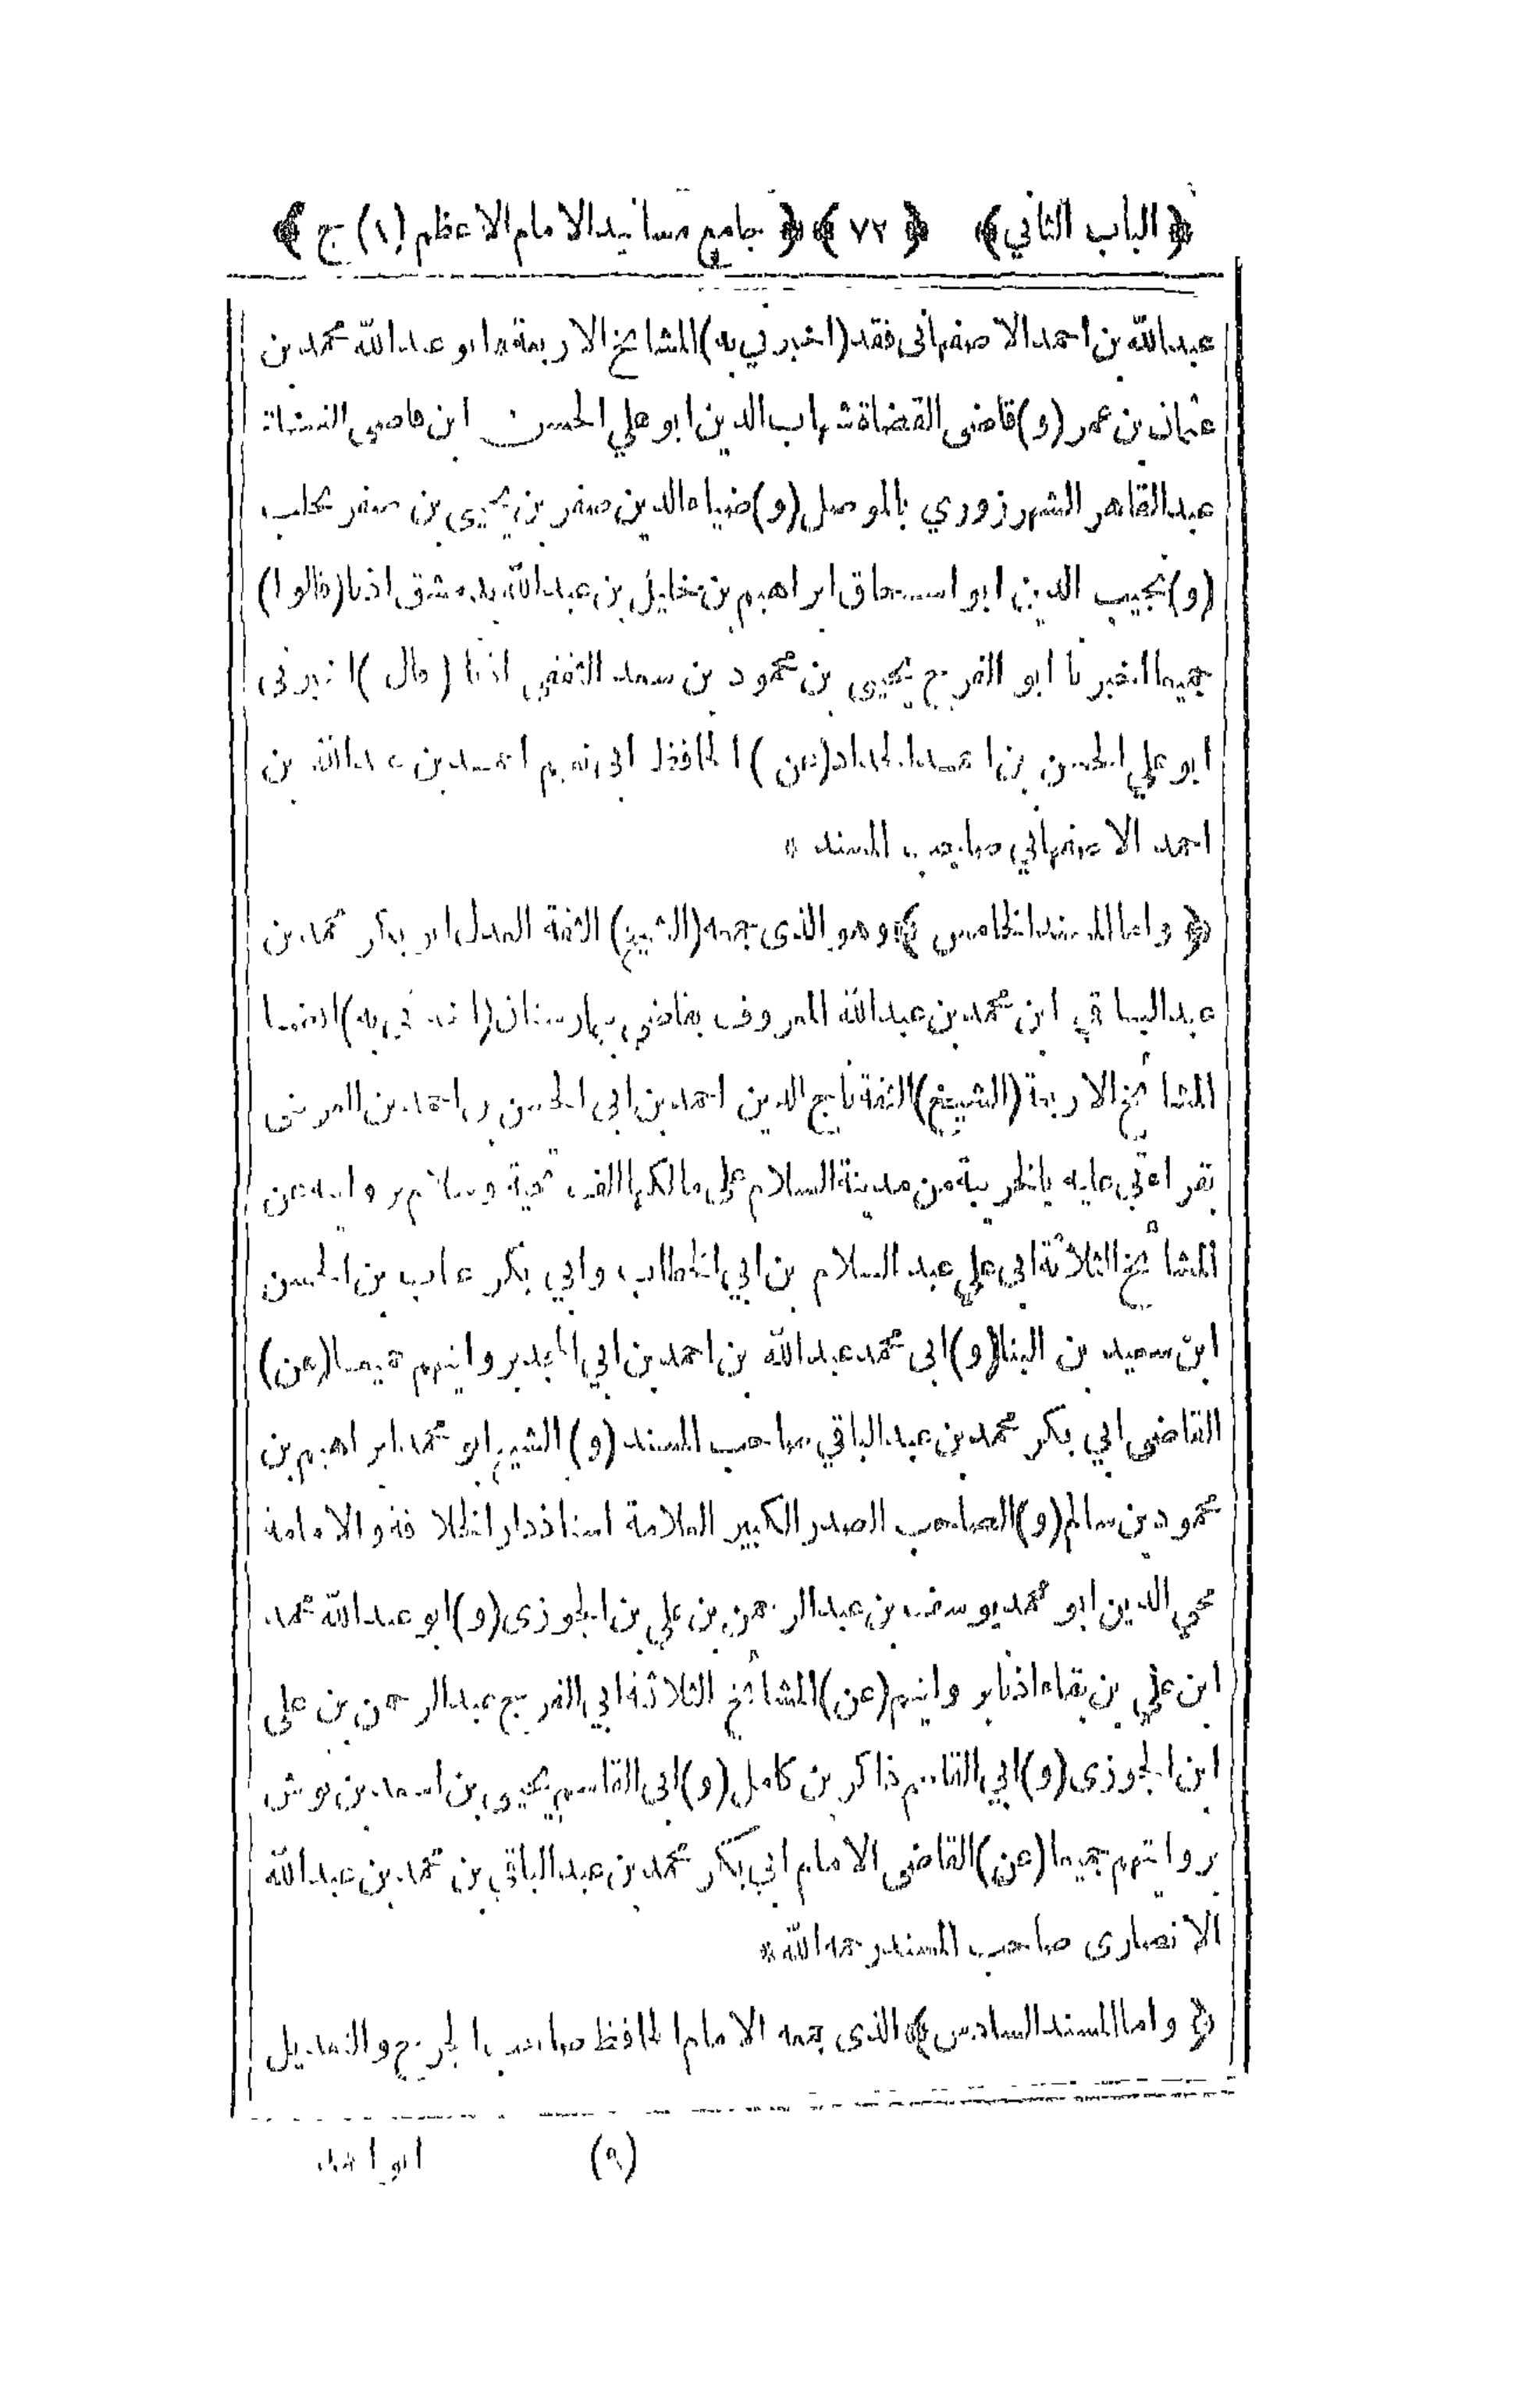 ﴿ الباب الثاني ﴾ ﴿ ٧٢ ﴾ ﴿ جامع مسانيد الامام الاعظم (١) ج ﴾
عبدالله بن احمد الاصفهانى فقد (اخبرني به) المشايخ الاربعة ابو عبدالله محمد بن
عثمان بن عمر (و) قاضى القضاة شهاب الدين ابو علي الحسن ابن قاضى القضاة
عبدالقاهر الشهرزوري بالموصل (و) ضياء الدين صقر بن يحيى بن صقر بحلب
(و) نجيب الدين ابو اسحاق ابراهيم بن خليل بن عبدالله بدمشق اذنا (قالوا)
جميعا اخبرنا ابو الفرج يحيى بن محمود بن سعد الثقفي اذنا (قال) اخبرنى
ابو علي الحسن بن احمد الحداد (عن) الحافظ ابى نعيم احمد بن عبدالله بن
احمد الاصفهاني صاحب المسند *
﴿ واما المسند الخامس ﴾ وهو الذى جمعه (الشيخ) الثقة العدل ابو بكر محمد بن
عبدالباقي ابن محمد بن عبدالله المعروف بقاضى بيمارستان (اخبرني به) ايضا
المشائخ الاربعة (الشيخ) الثقة تاج الدين احمد بن ابى الحسن بن احمد بن العربى
بقراءتي عليه بالحربية من مدينة السلام على مالكها الف تحية وسلام بروايته عن
المشائخ الثلاثة ابى علي عبد السلام بن ابي الخطاب وابي بكر عتاب بن الحسن
ابن سعيد بن البنا (و) ابى محمد عبدالله بن احمد بن ابي المجد بروايتهم جميعا (عن)
القاضى ابي بكر محمد بن عبدالباقي صاحب المسند (و) الشيخ ابو محمد ابراهيم بن
محمود بن سالم (و) الصاحب الصدر الكبير العلامة استاذ دار الخلافة والامامة
محي الدين ابو محمد يوسف بن عبدالرحمن بن علي بن الجوزى (و) ابو عبدالله محمد
ابن علي بن بقاء اذنا بروايتهم (عن) المشائخ الثلاثة ابي الفرج عبدالرحمن بن على
ابن الجوزى (و) ابي القاسم ذاكر بن كامل (و) ابى القاسم يحيى بن اسعد بن بوش
بروايتهم جميعا (عن) القاضى الامام ابي بكر محمد بن عبدالباقي بن محمد بن عبدالله
الانصارى صاحب المسند رحمه الله *
﴿ واما المسند السادس ﴾ الذى جمعه الامام الحافظ صاحب الجرح والتعديل
(٩) ابو احمد